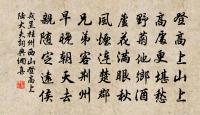 登高上山上
高處更堪愁
野菊他鄉酒
蘆花滿眼秋
風煙連楚郡
兄弟客荊州
早晚朝天去
親隨定遠侯
戎昱桂州西山登高上
陸大夫